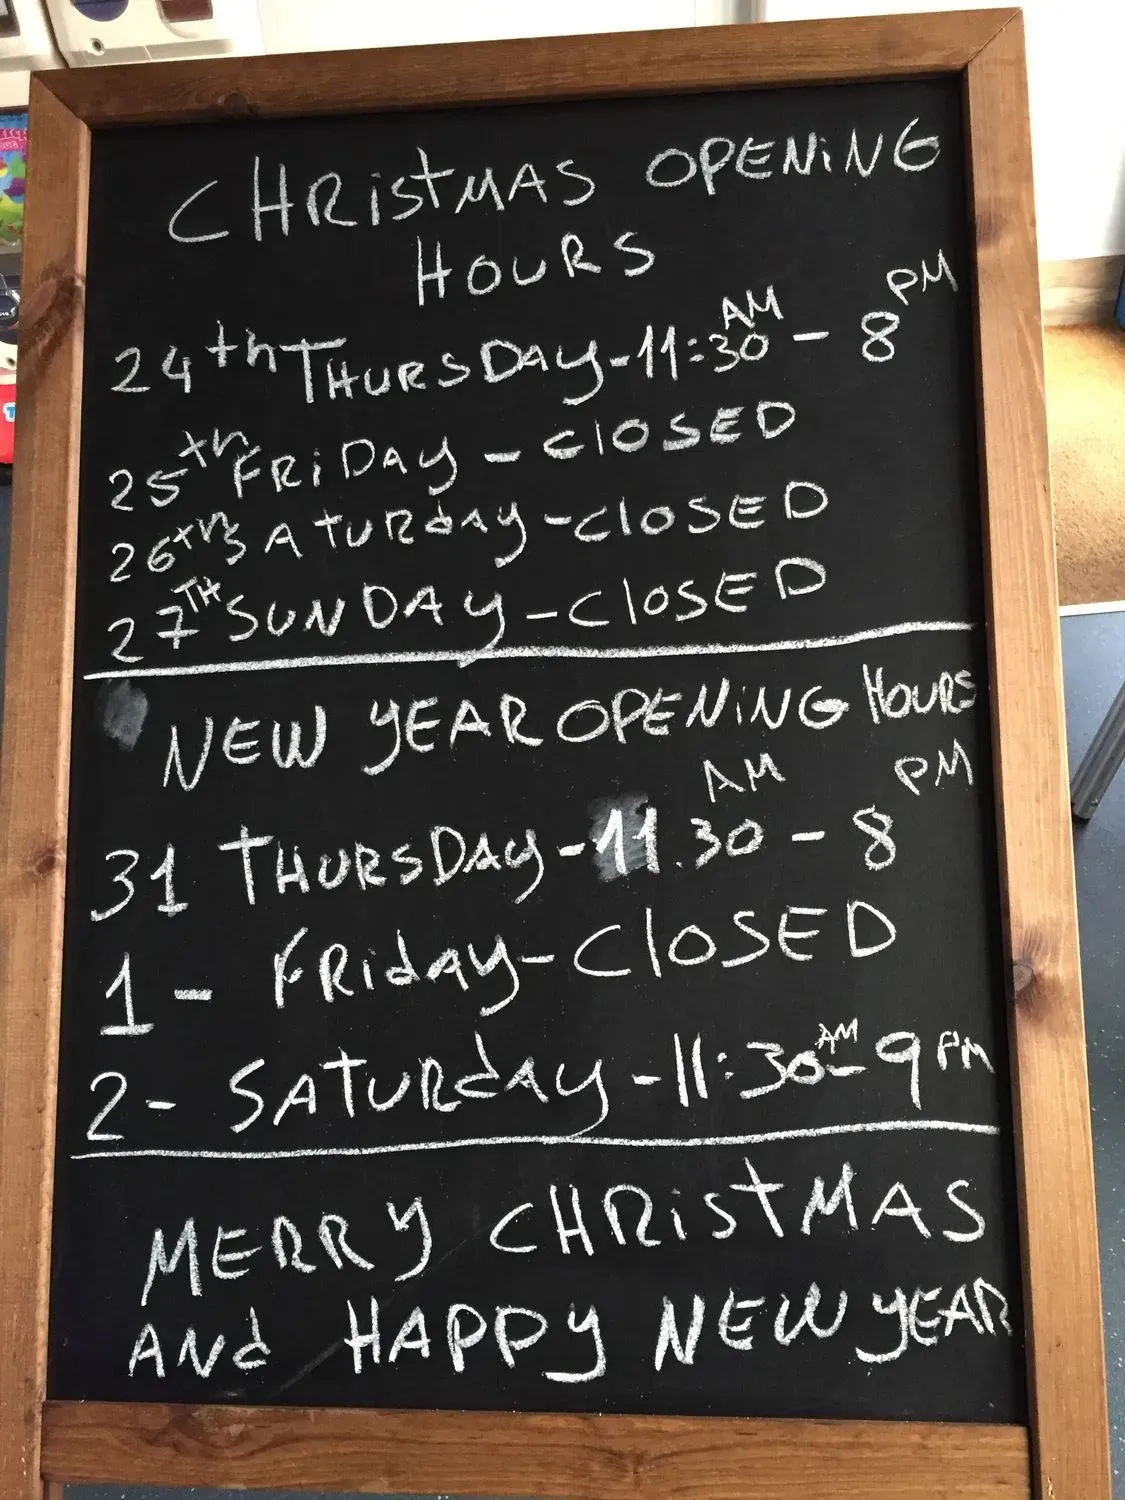 CHRiStMAS OPENiNG
HOURS
24th THURSDAY-11:30AM - 8PM
25th FRiDAY - ClOSED
26th SATURdAY - ClOSED
27TH SUNDAY - ClOSED
NEW YEAR OPENiNG HOURS
31 THURSDAY - 11.30AM - 8PM
1 - FRidAY - ClOSED
2 - SATURdAY - 11:30AM - 9PM
MERRY CHRiStMAS
ANd HAPPY NEW YEAR